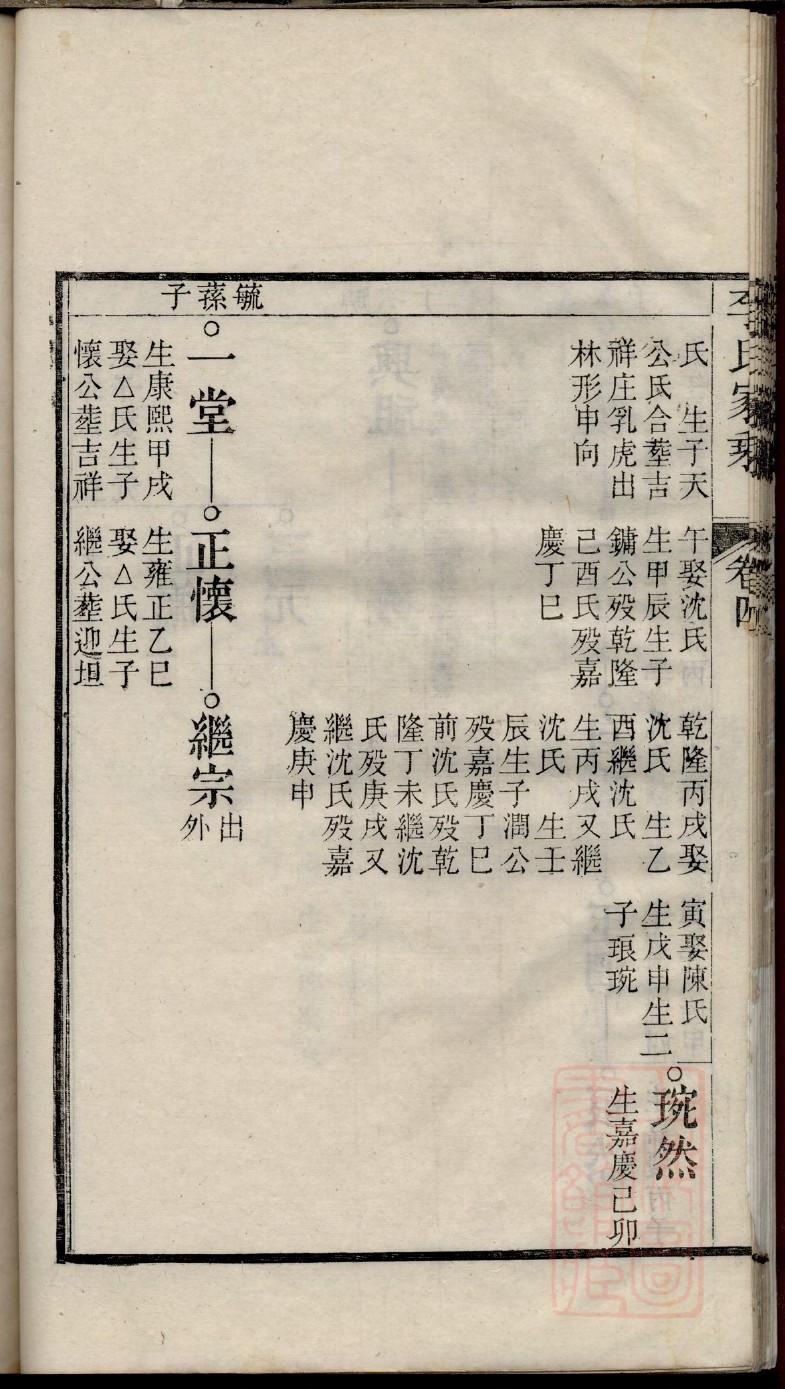 李氏家乘
卷四
氏　生子天
公氏合塟吉
祥庄乳虎出
林形申向
午娶沈氏
生甲辰生子
鏞公殁乾隆
己酉氏殁嘉
慶丁巳
乾隆丙戌娶
沈氏　生乙
酉繼沈氏
生丙戌又繼
沈氏　生壬
辰生子潤公
殁嘉慶丁巳
前沈氏殁乾
隆丁未繼沈
氏殁庚戌又
繼沈氏殁嘉
慶庚申
寅娶陳氏
生戊申生二
子琅琬
琬然
生嘉慶己卯
毓蓀子
一堂
生康熙甲戌
娶△氏生子
懷公塟吉祥
正懷
生雍正乙巳
娶△氏生子
繼公塟迎坦
繼宗
出
外